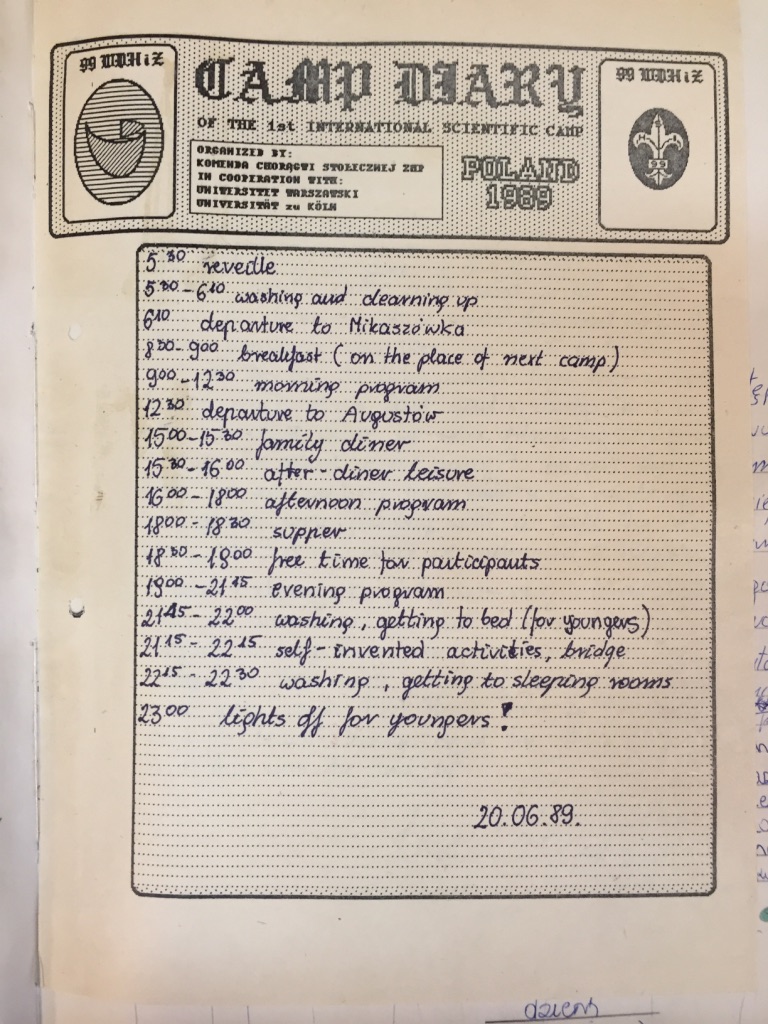 99 WDHiZ
CAMP DIARY
99 WDHiZ
OF THE 1st INTERNATIONAL SCIENTIFIC CAMP
ORGANIZED BY:
KOMENDA CHORĄGWI STOŁECZNEJ ZHP
IN COOPERATION WITH:
UNIWERSYTET WARSZAWSKI
UNIVERSITÄT zu KÖLN
POLAND
1989
99
5 30 reveille
5 30 - 6 10 washing and clearning up
6 10 departure to Mikaszówka
8 30 - 9 00 breakfast (on the place of next camp)
9 00 - 12 30 morning program
12 30 departure to Augustów
15 00 - 15 30 family diner
15 30 - 16 00 after-diner leisure
16 00 - 18 00 afternoon program
18 00 - 18 30 supper
18 30 - 19 00 free time for participants
19 00 - 21 15 evening program
21 45 - 22 00 washing, getting to bed (for youngers)
21 15 - 22 15 self-invented activities, bridge
22 15 - 22 30 washing, getting to sleeping rooms
23 00 lights off for youngers!
20.06.89.
dzień